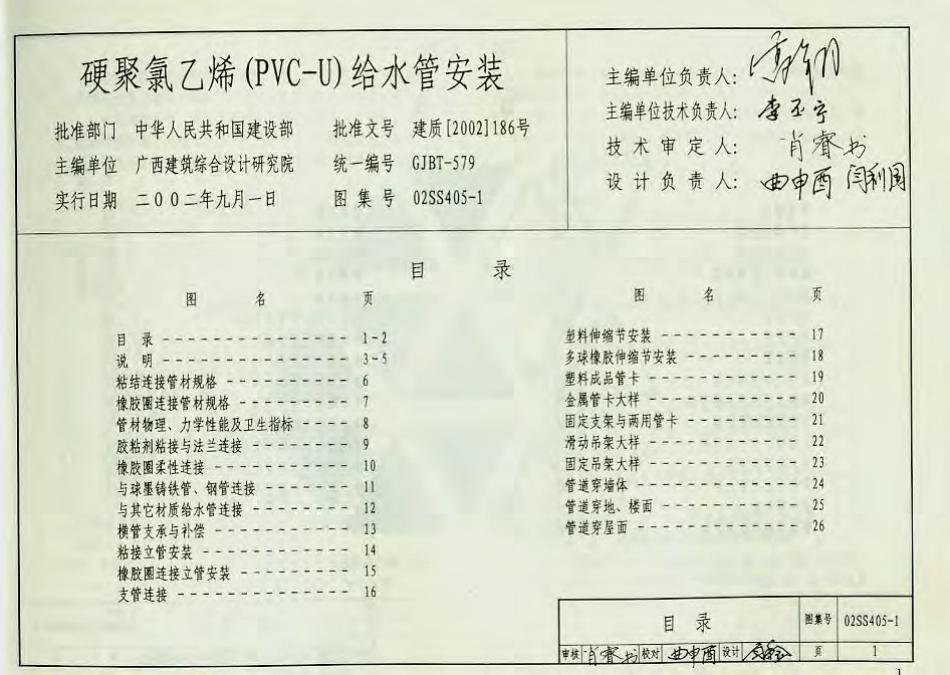 硬聚氯乙烯(PVC-U)给水管安装
批准部门 中华人民共和国建设部 批准文号 建质[2002]186号
主编单位 广西建筑综合设计研究院 统一编号 GJBT-579
实行日期 二00二年九月一日 图集号 02SS405-1
主编单位负责人:
主编单位技术负责人:
技术审定人: 肖睿书
设计负责人: 曲申酉 闫利国
目 录
图 名 页
目 录 1-2
说 明 3-5
粘结连接管材规格 6
橡胶圈连接管材规格 7
管材物理、力学性能及卫生指标 8
胶粘剂粘接与法兰连接 9
橡胶圈柔性连接 10
与球墨铸铁管、钢管连接 11
与其它材质给水管连接 12
横管支承与补偿 13
粘接立管安装 14
橡胶圈连接立管安装 15
支管连接 16
图 名 页
塑料伸缩节安装 17
多球橡胶伸缩节安装 18
塑料成品管卡 19
金属管卡大样 20
固定支架与两用管卡 21
滑动吊架大样 22
固定吊架大样 23
管道穿墙体 24
管道穿地、楼面 25
管道穿屋面 26
目 录 图集号 02SS405-1
审核 肖睿书 校对 曲申酉 设计 页 1
1